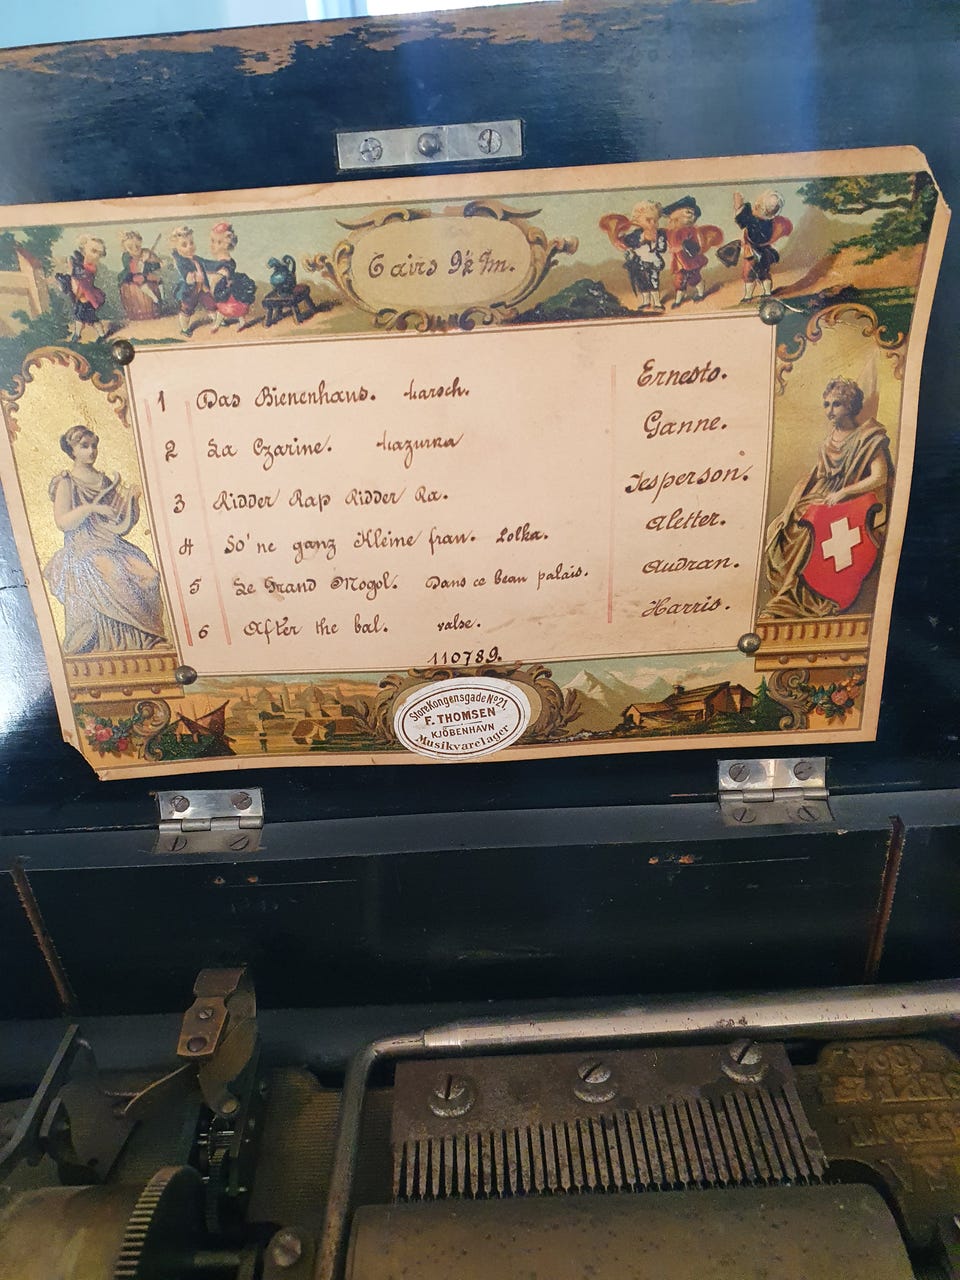 6 airs 9½ Im.
1 Das Bienenhaus. Marsch. Ernesto.
2 La Czarine. Mazurka Ganne.
3 Ridder Rap Ridder Ra. Jesperson.
4 So'ne ganz Kleine frau. Polka. Aletter.
5 Le Grand Mogol. Dans ce beau palais. Audran.
6 After the bal. valse. Harris.
110789.
Store Kongensgade No 21,
F. THOMSEN
KJÖBENHAVN
Musikvarelager